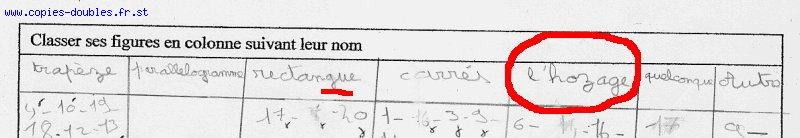 www.copies-doubles.fr.st
Classer ses figures en colonne suivant leur nom
trapèze parallélogramme rectangue carrés l'hozage quelconque Autro
9-10-19 17- -20 1- -3-9- 6- -16- 17 9-
18-12-13